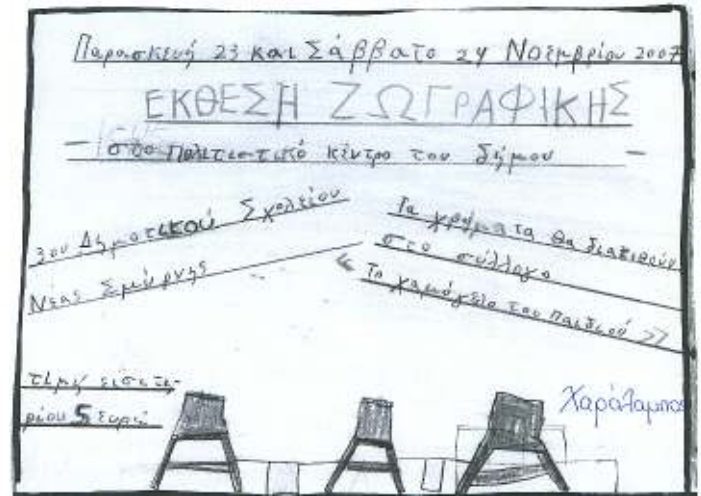 Παρασκευή 23 και Σάββατο 24 Νοεμβρίου 2007
ΕΚΘΕΣΗ ΖΩΓΡΑΦΙΚΗΣ
- στο πολιτιστικό κέντρο του δήμου -
3ου Δημοτικού Σχολείου
Νέας Σμύρνης
Τα χρήματα θα διατεθούν
στο σύλλογο
« Το χαμόγελο του παιδιού »
τιμή εισιτη-
ρίου 5 ευρώ
Χαράλαμπος